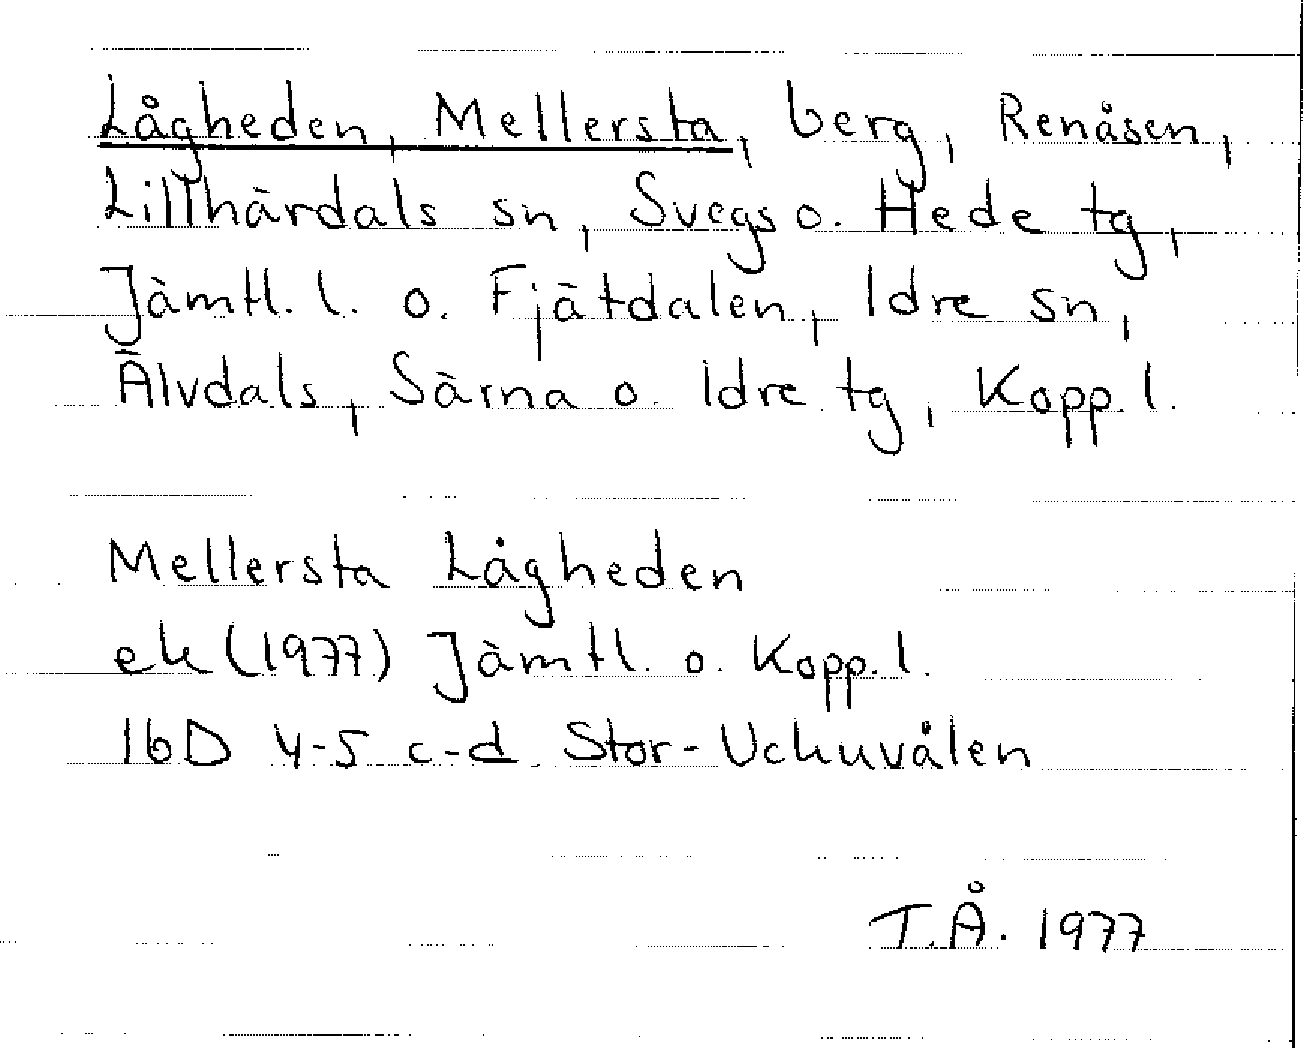 Lågheden, Mellersta, berg, Renåsen,
Lillhärdals sn, Svegs o. Hede tg,
Jämtl. l. o. Fjätdalen, Idre sn,
Älvdals, Särna o. Idre tg, Kopp. l.
Mellersta Lågheden
ek (1977) Jämtl. o. Kopp. l.
16D 4-5 c-d Stor-Uckuvålen
T.Å. 1977